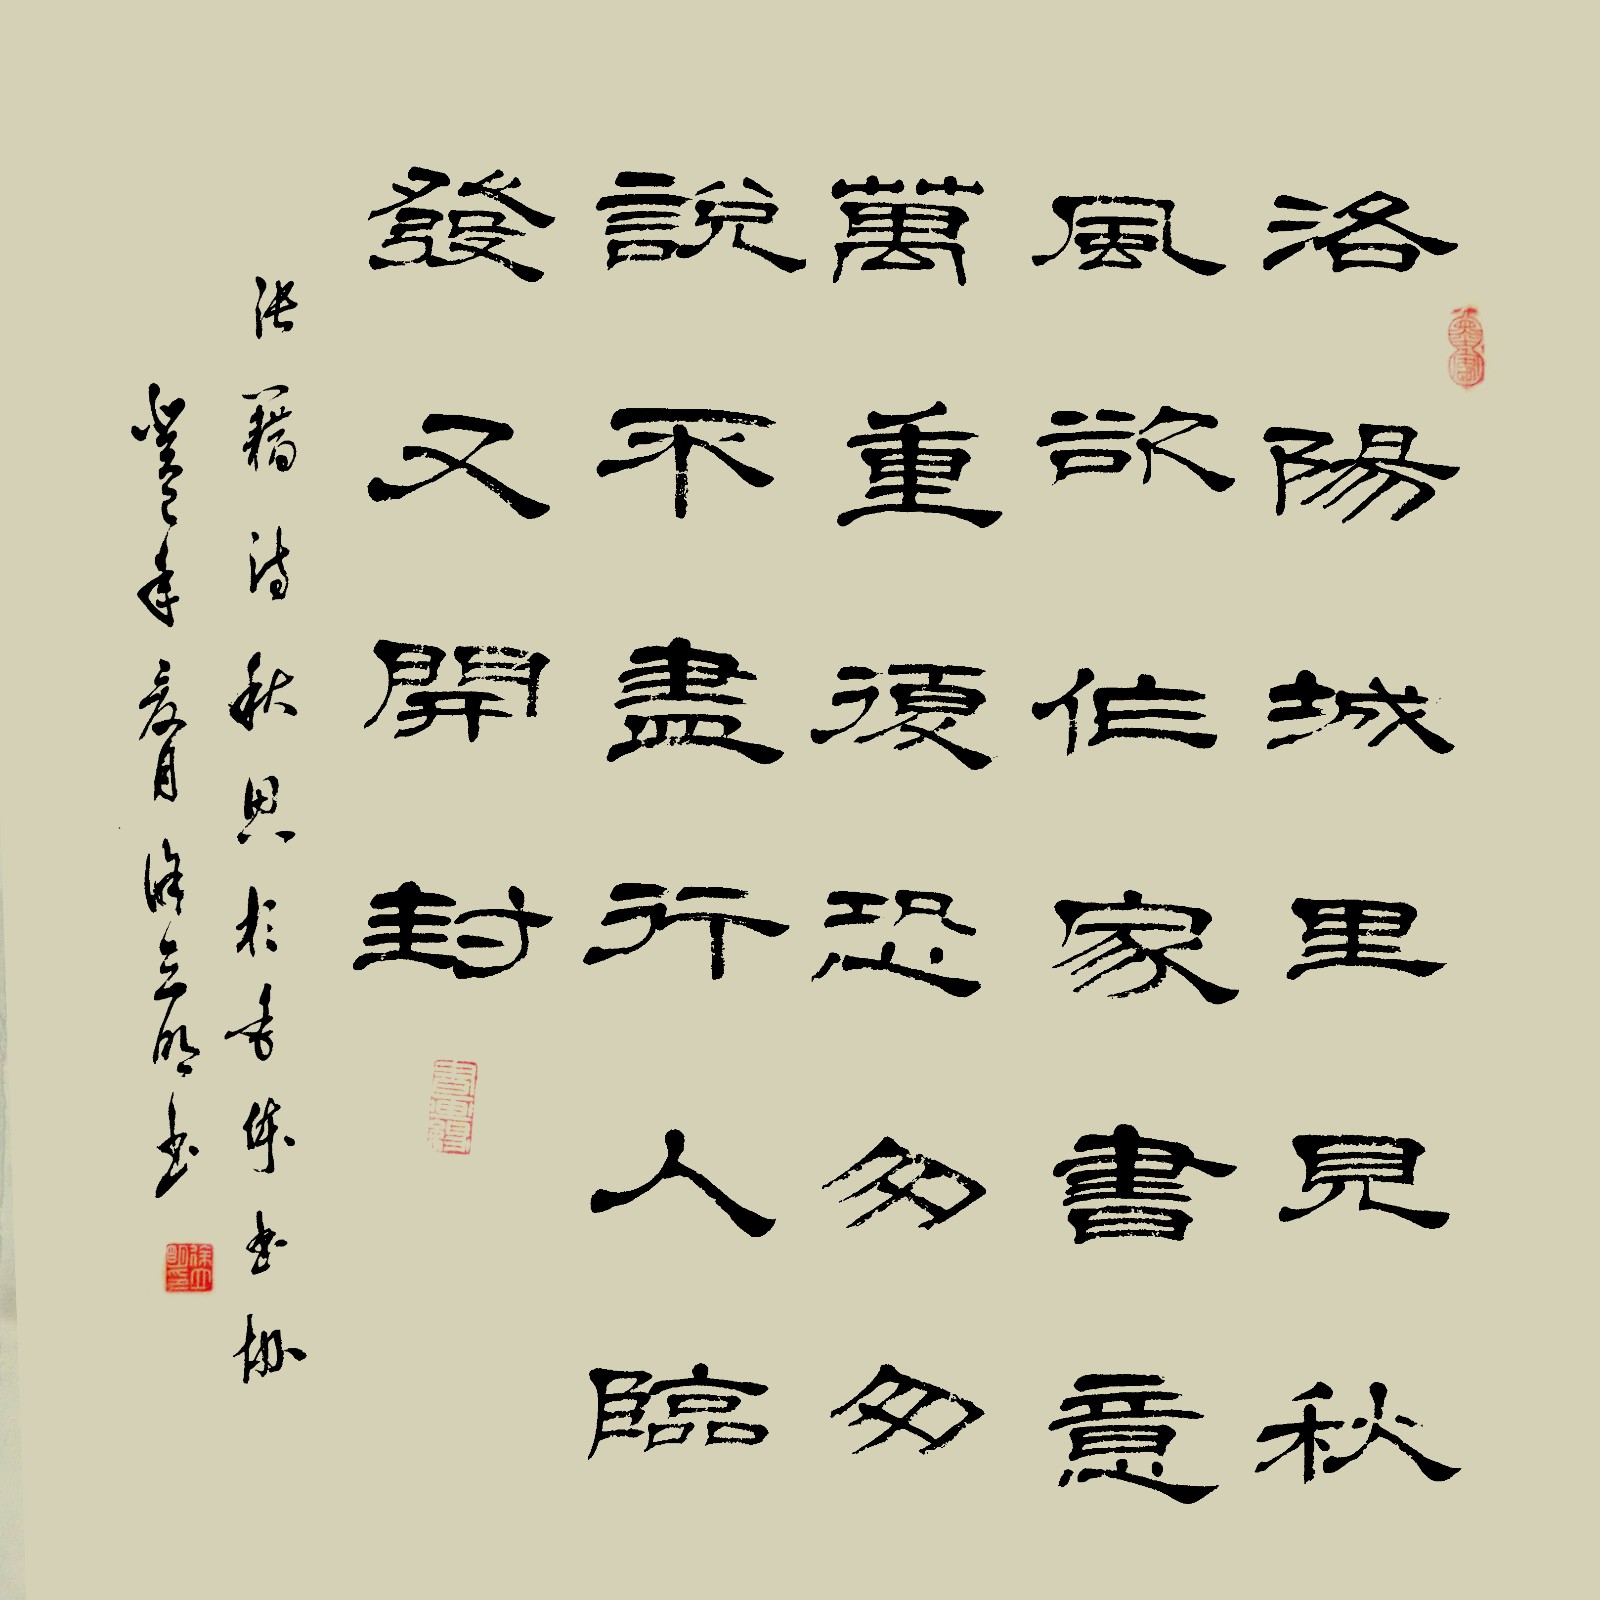 洛陽城里見秋
風欲作家書意
萬重復恐匆匆
說不盡行人臨
發又開封
張籍詩秋思於書城書協
癸巳年夏月徐立明書